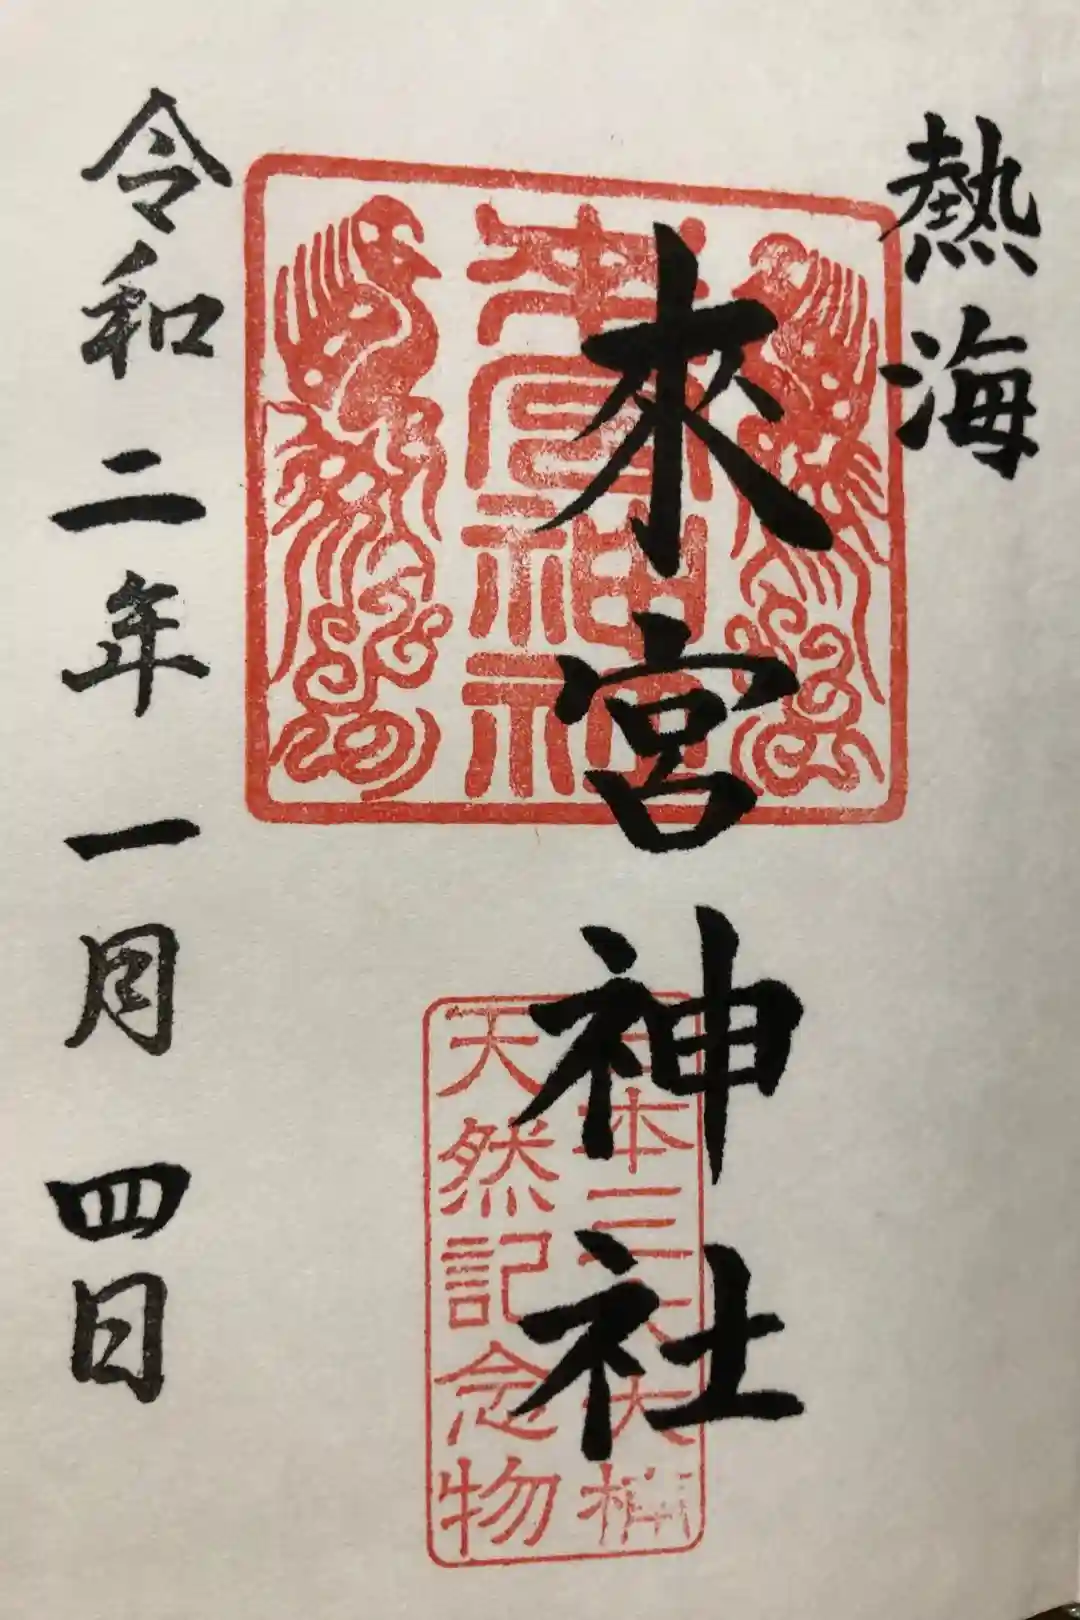 熱海
來宮神社
來宮神社
日本三大大楠
天然記念物
令和二年一月四日